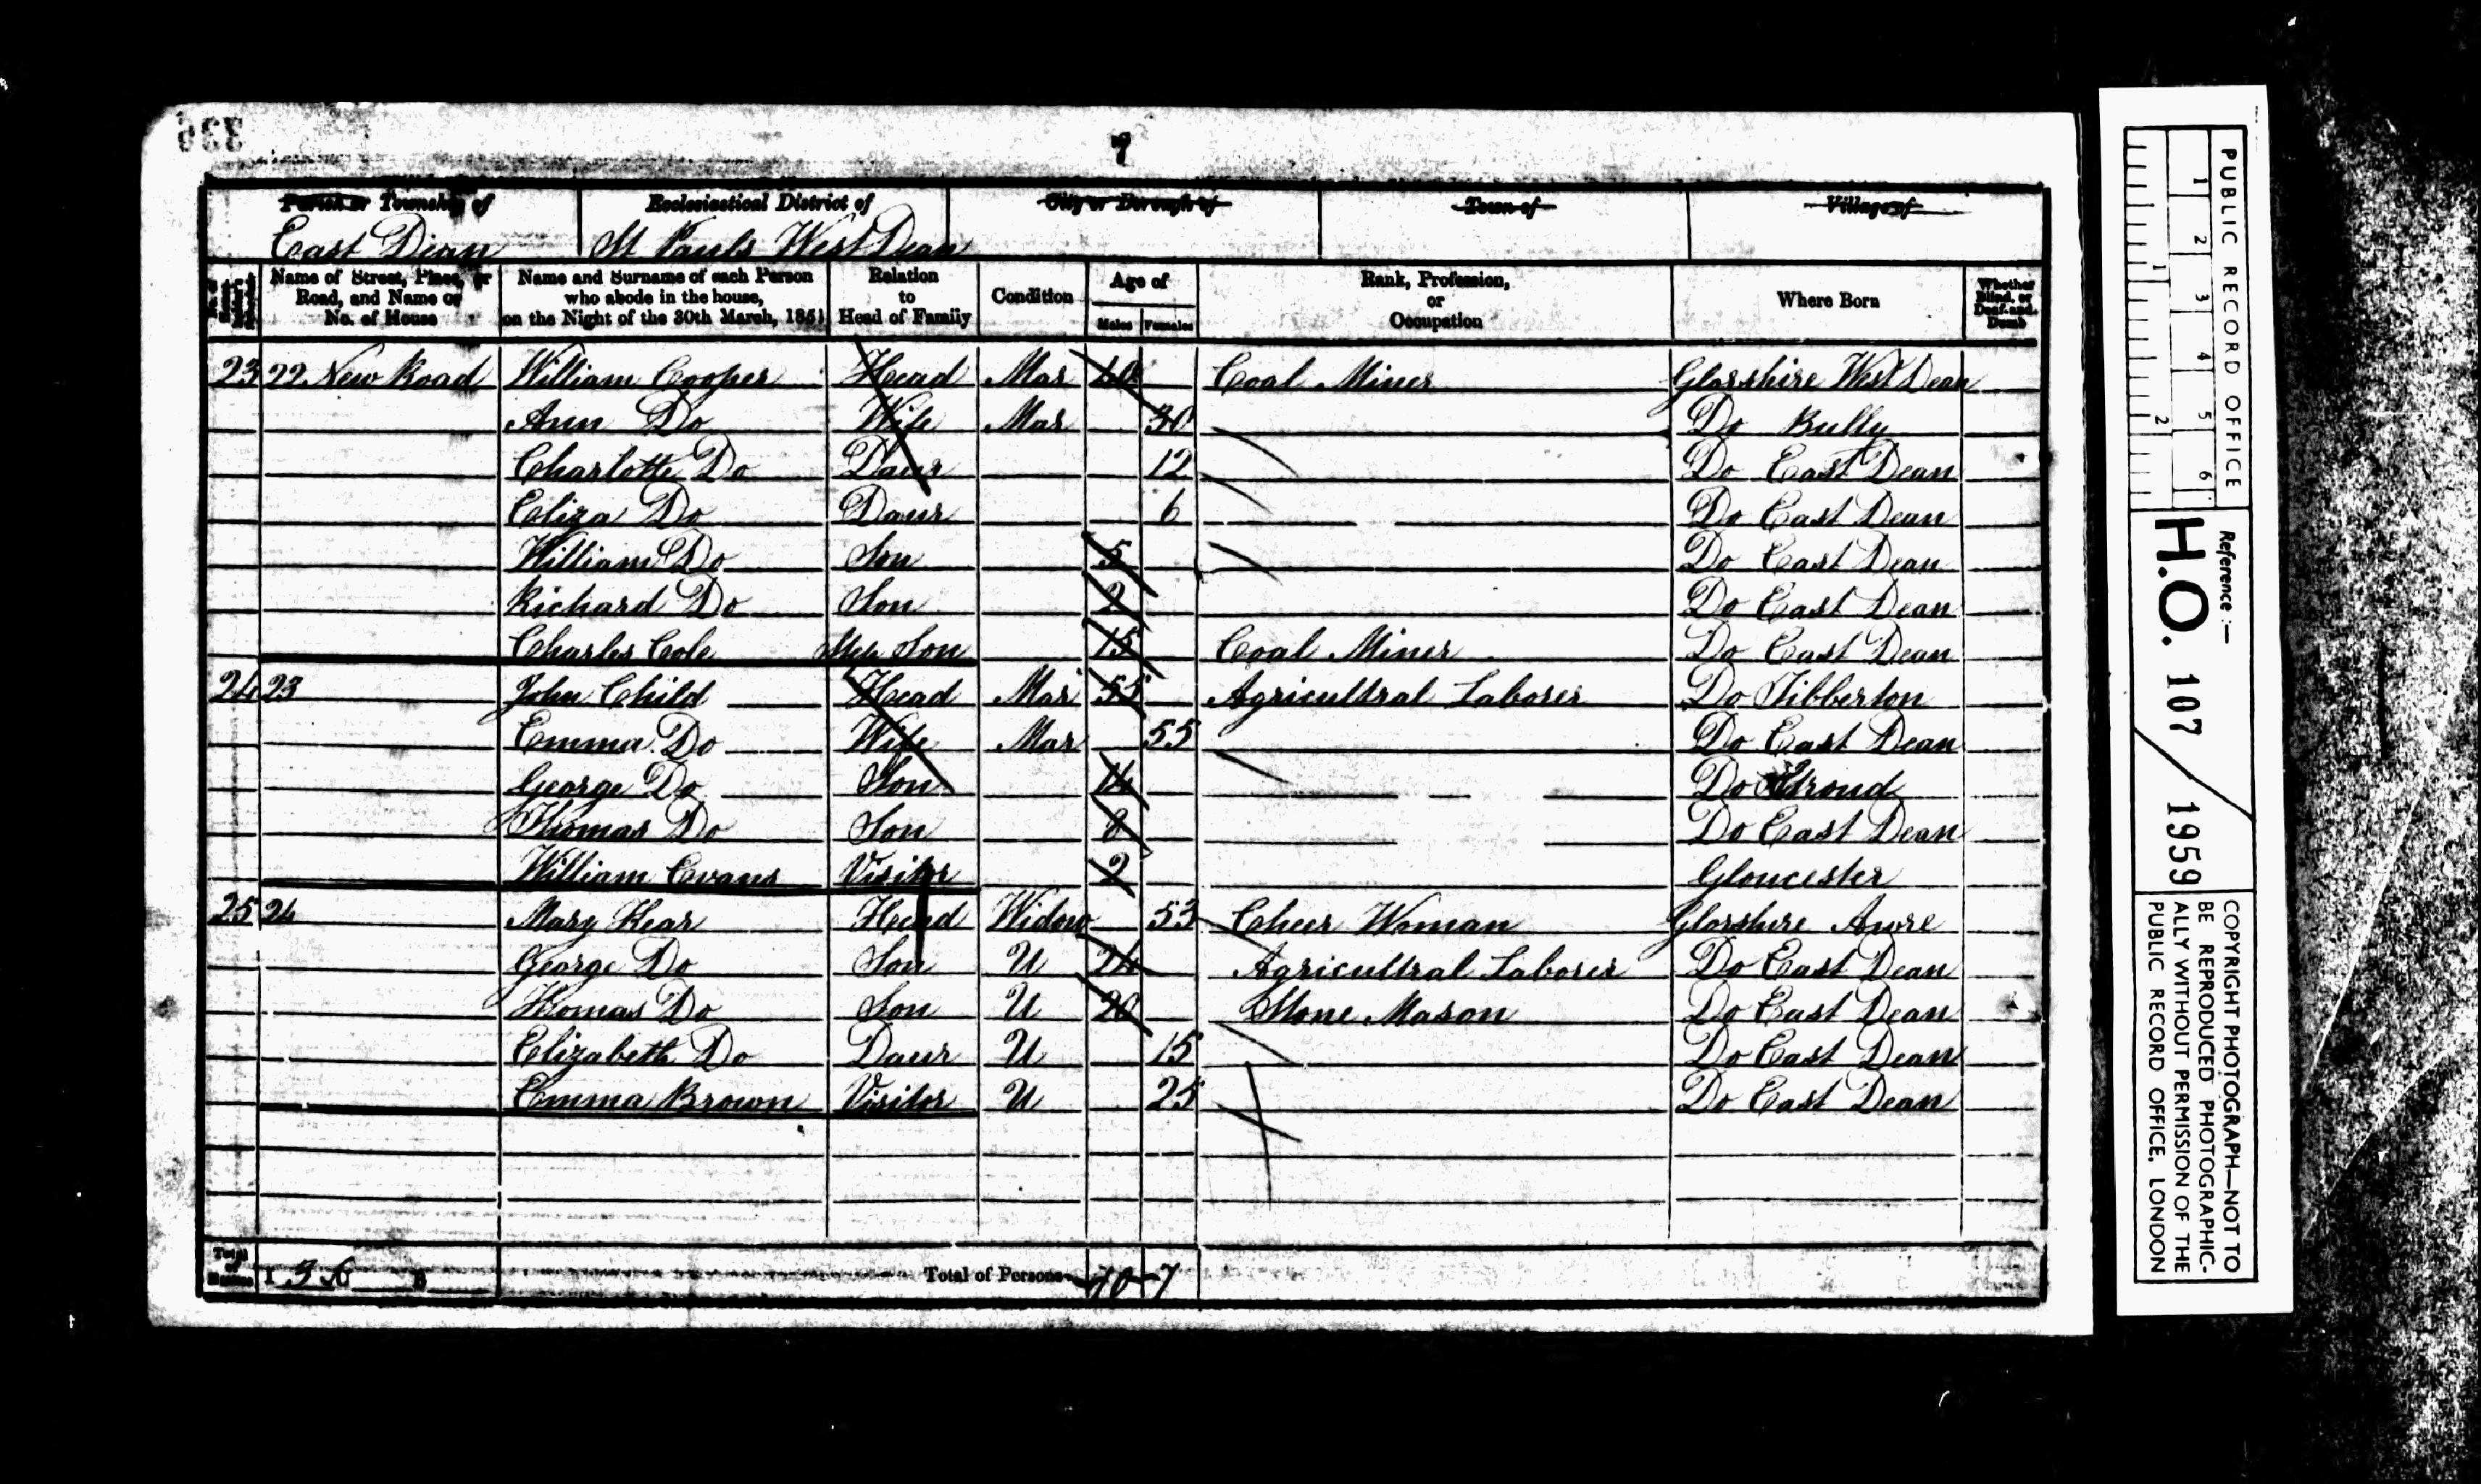 336
7
Parish or Township of Ecclesiastical District of City or Borough of Town of Village of
East Dean St Pauls West Dean
Name of Street, Place, or Road, and Name or No. of House
Name and Surname of each Person who abode in the house, on the Night of the 30th March, 1851
Relation to Head of Family
Condition
Age of
Males Females
Rank, Profession, or Occupation
Where Born
Whether Blind, or Deaf-and-Dumb
23 22 New Road William Cooper Head Mar 40 Coal Miner Glosshire West Dean
Ann Do Wife Mar 30 Do
Charlotte Do Daur 12 Do East Dean
Eliza Do Daur 6 Do East Dean
William Do Son 5 Do East Dean
Richard Do Son 2 Do East Dean
Charles Cole Step Son 15 Coal Miner Do East Dean
24 23 John Child Head Mar 55 Agricultral Laborer Do Tibberton
Emma Do Wife Mar 55 Do East Dean
George Do Son 14 Do Stroud
Thomas Do Son 8 Do East Dean
William Evans Visitor 2 Gloucester
25 24 Mary Kear Head Widow 53 Cheer Woman Glosshire Awre
George Do Son U 24 Agricultral Laborer Do East Dean
Thomas Do Son U 20 Stone Mason Do East Dean
Elizabeth Do Daur U 15 Do East Dean
Emma Brown Visitor U 25 Do East Dean
Total of Houses I 3 B Total of Persons 10 7
PUBLIC RECORD OFFICE
1 2 3 4 5 6
1 2
Reference :-
H.O. 107 / 1959
COPYRIGHT PHOTOGRAPH—NOT TO
BE REPRODUCED PHOTOGRAPHIC-
ALLY WITHOUT PERMISSION OF THE
PUBLIC RECORD OFFICE, LONDON